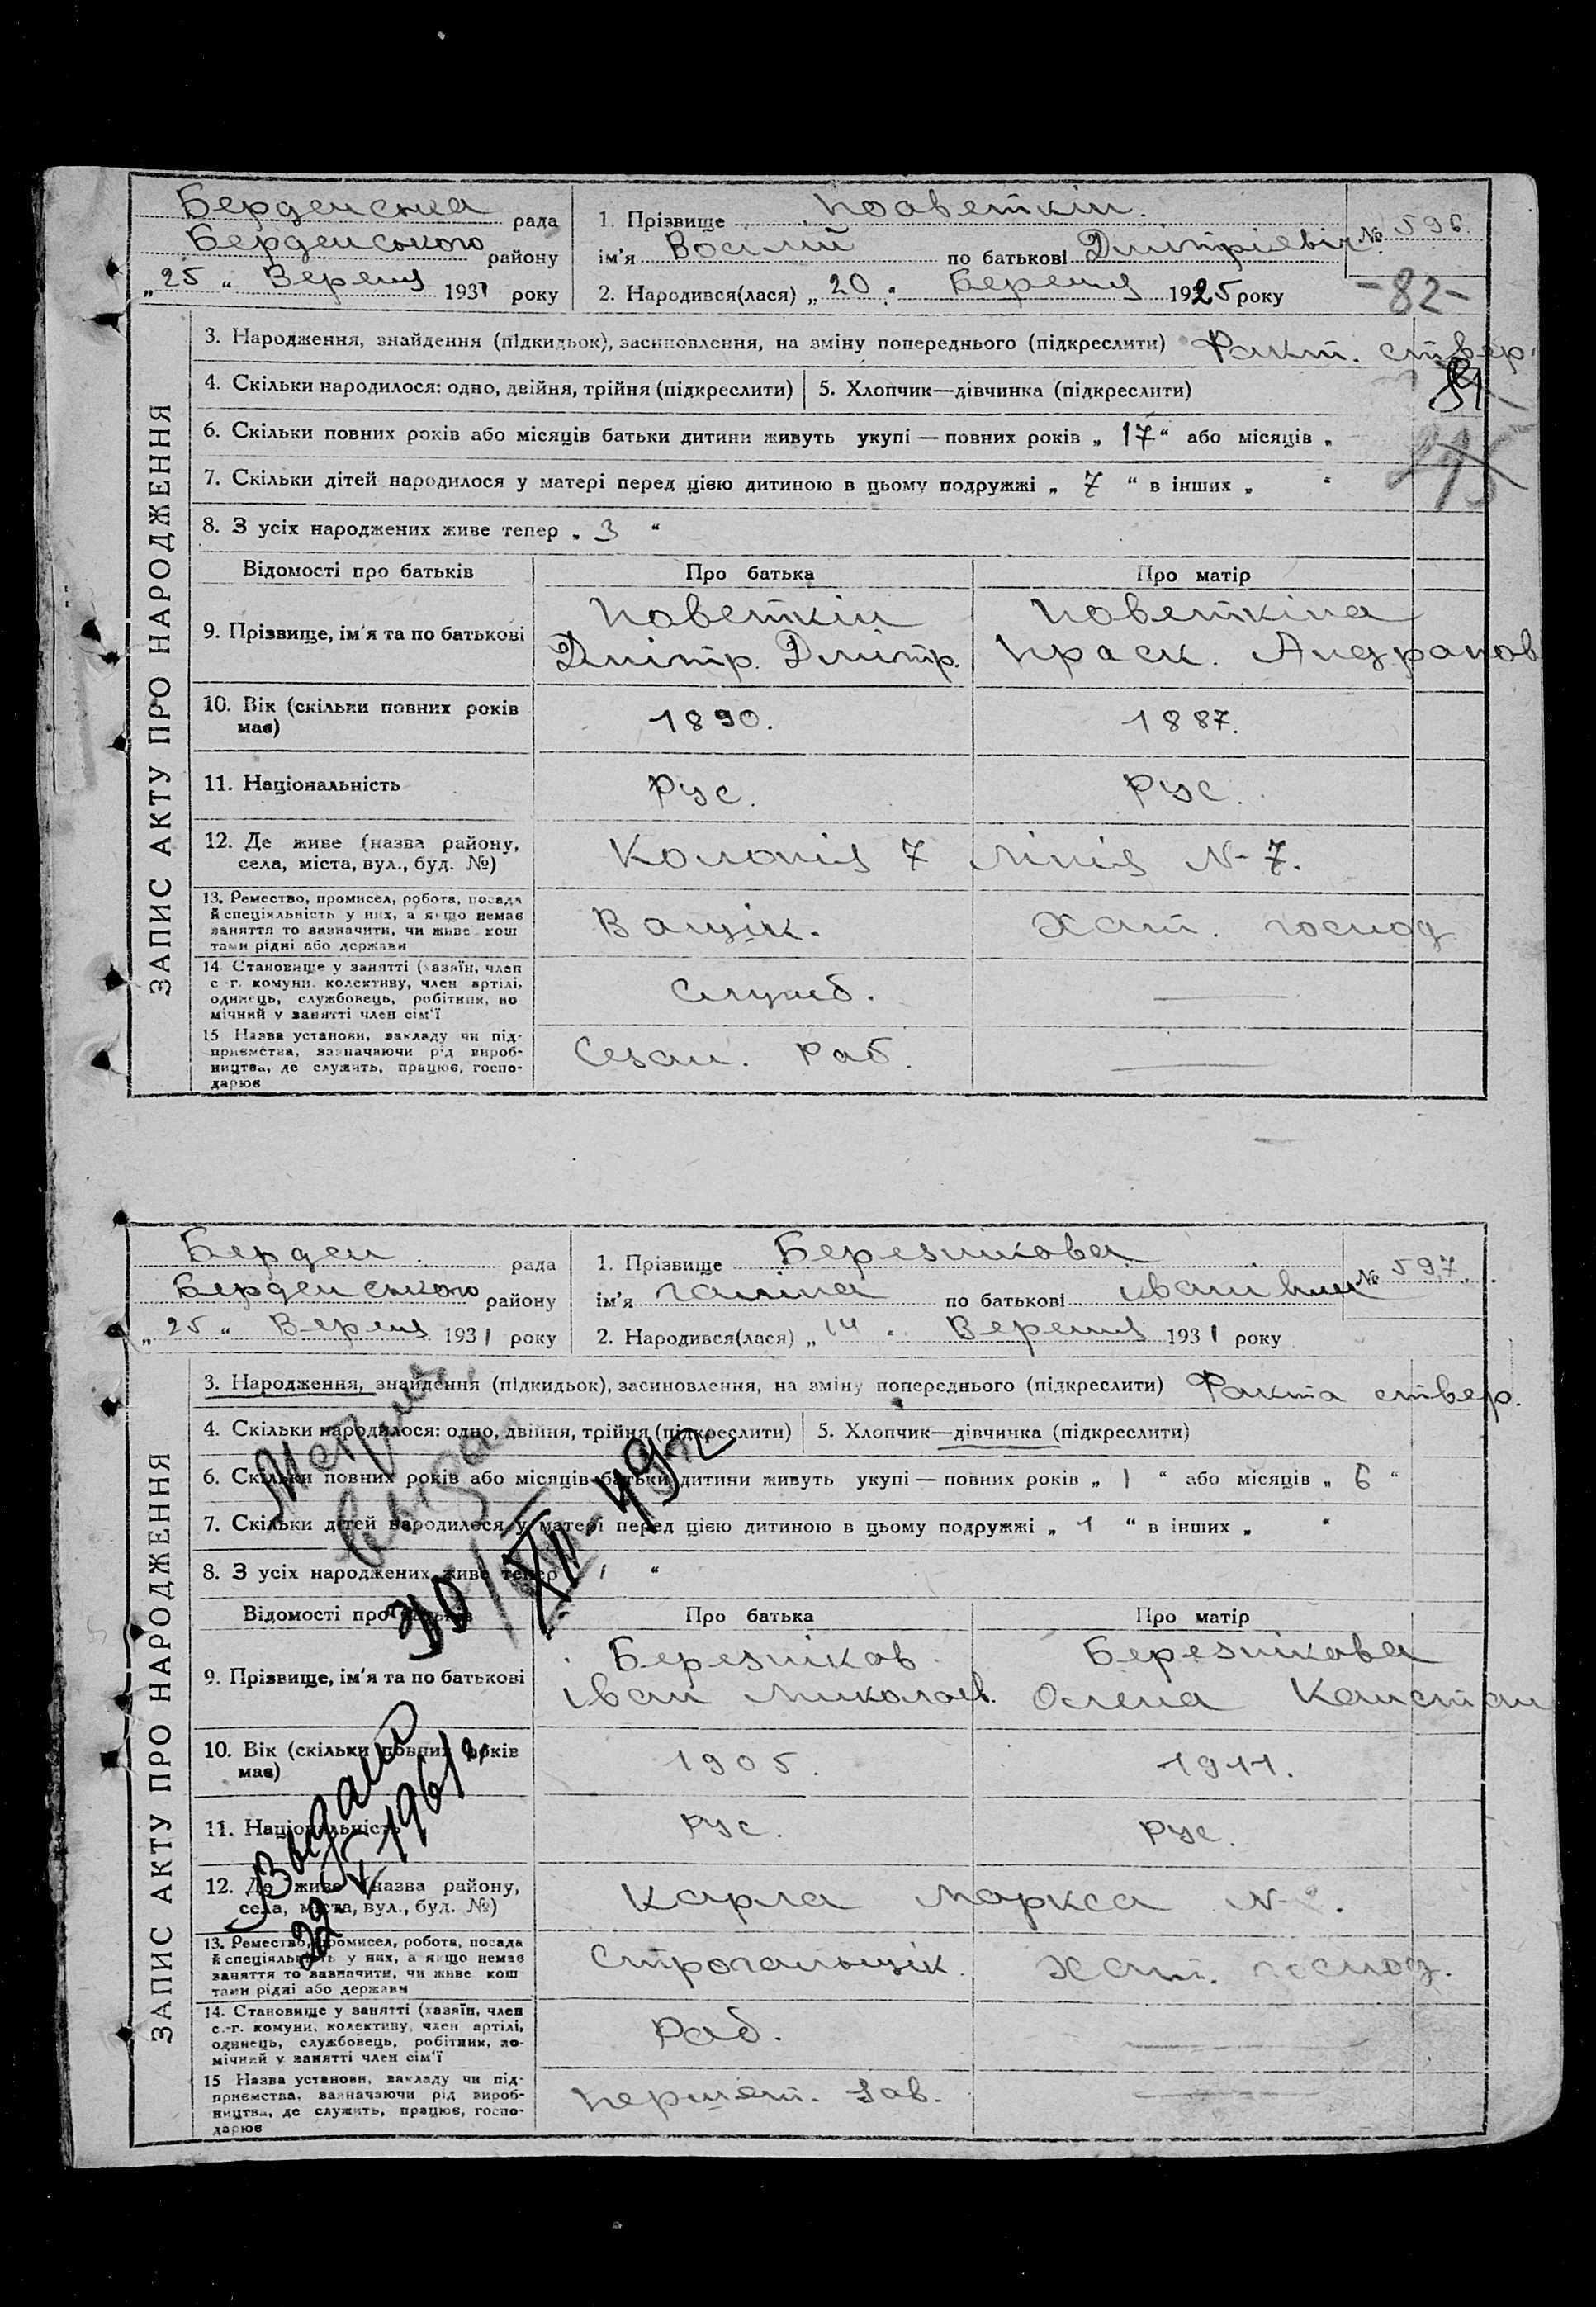 Берденська рада
Берденського району
„ 25 “ Вересня 1931 року
1. Прізвище Поветкін.
ім'я Восілий по батькові Дмітріевіч
№ 596.
2. Народився(лася) „ 20 “ Березня 1925 року
-82-
3. Народження, знайдення (підкидьок), засиновлення, на зміну попереднього (підкреслити) Факт. ствер.
4. Скільки народилося: одно, двійня, трійня (підкреслити) 5. Хлопчик—дівчинка (підкреслити)
6. Скільки повних років або місяців батьки дитини живуть укупі — повних років „ 17 “ або місяців „
7. Скільки дітей народилося у матері перед цією дитиною в цьому подружжі „ 7 “ в інших „ “
8. З усіх народжених живе тепер „ 3 “
Відомості про батьків Про батька Про матір
9. Прізвище, ім'я та по батькові
Поветкін
Дмітр. Дмітр.
Поветкіна
Праск. Андранов
10. Вік (скільки повних років має) 1890. 1887.
11. Національність Рус. Рус.
12. Де живе (назва району, села, міста, вул., буд. №) Колонія 7 лінія N-7.
13. Ремество, промисел, робота, посада
й спеціяльність у них, а якщо немає
заняття то визначити, чи живе кош
тами рідні або держави
Ващік. Хат. господ
14. Становище у занятті (хазяїн, член
с.-г. комуни, колективу, член артілі,
одинець, службовець, робітник, по
мічний у занятті член сім'ї
Служб.
15 Назва установи, закладу чи під-
приємства, зазначаючи рід вироб-
ництва, де служить, працює, госпо-
дарює
Сезан. Раб.
ЗАПИС АКТУ ПРО НАРОДЖЕННЯ
Берден. рада
Берденського району
„ 25 “ Вересня 1931 року
1. Прізвище Березнікова
ім'я Галіна по батькові Іванівни
№ 597.
2. Народився(лася) „ 14 “ Вересня 1931 року
3. Народження, знайдення (підкидьок), засиновлення, на зміну попереднього (підкреслити) Факта ствер.
4. Скільки народилося: одно, двійня, трійня (підкреслити) 5. Хлопчик—дівчинка (підкреслити)
6. Скільки повних років або місяців батьки дитини живуть укупі — повних років „ 1 “ або місяців „ 6 “
7. Скільки дітей народилося у матері перед цією дитиною в цьому подружжі „ 1 “ в інших „ “
8. З усіх народжених живе тепер „ 1 “
Відомості про батьків Про батька Про матір
9. Прізвище, ім'я та по батькові
Березніков
Іван Миколаев.
Березнікова
Олена Канстан
10. Вік (скільки повних років має) 1905. 1911.
11. Національність Рус. Рус.
12. Де живе (назва району, села, міста, вул., буд. №) Карла Маркса N-
13. Ремество, промисел, робота, посада
й спеціяльність у них, а якщо немає
заняття то зазначити, чи живе кош
тами рідні або держави
Строгальщік. Хат. господ.
14. Становище у занятті (хазяїн, член
с.-г. комуни, колективу, член артілі,
одинець, службовець, робітник, по-
мічний у занятті член сім'ї
Раб.
15 Назва установи, закладу чи під-
приємства, зазначаючи рід вироб-
ництва, де служить, працює, госпо-
дарює
Першот. Зав.
ЗАПИС АКТУ ПРО НАРОДЖЕННЯ
Выдано